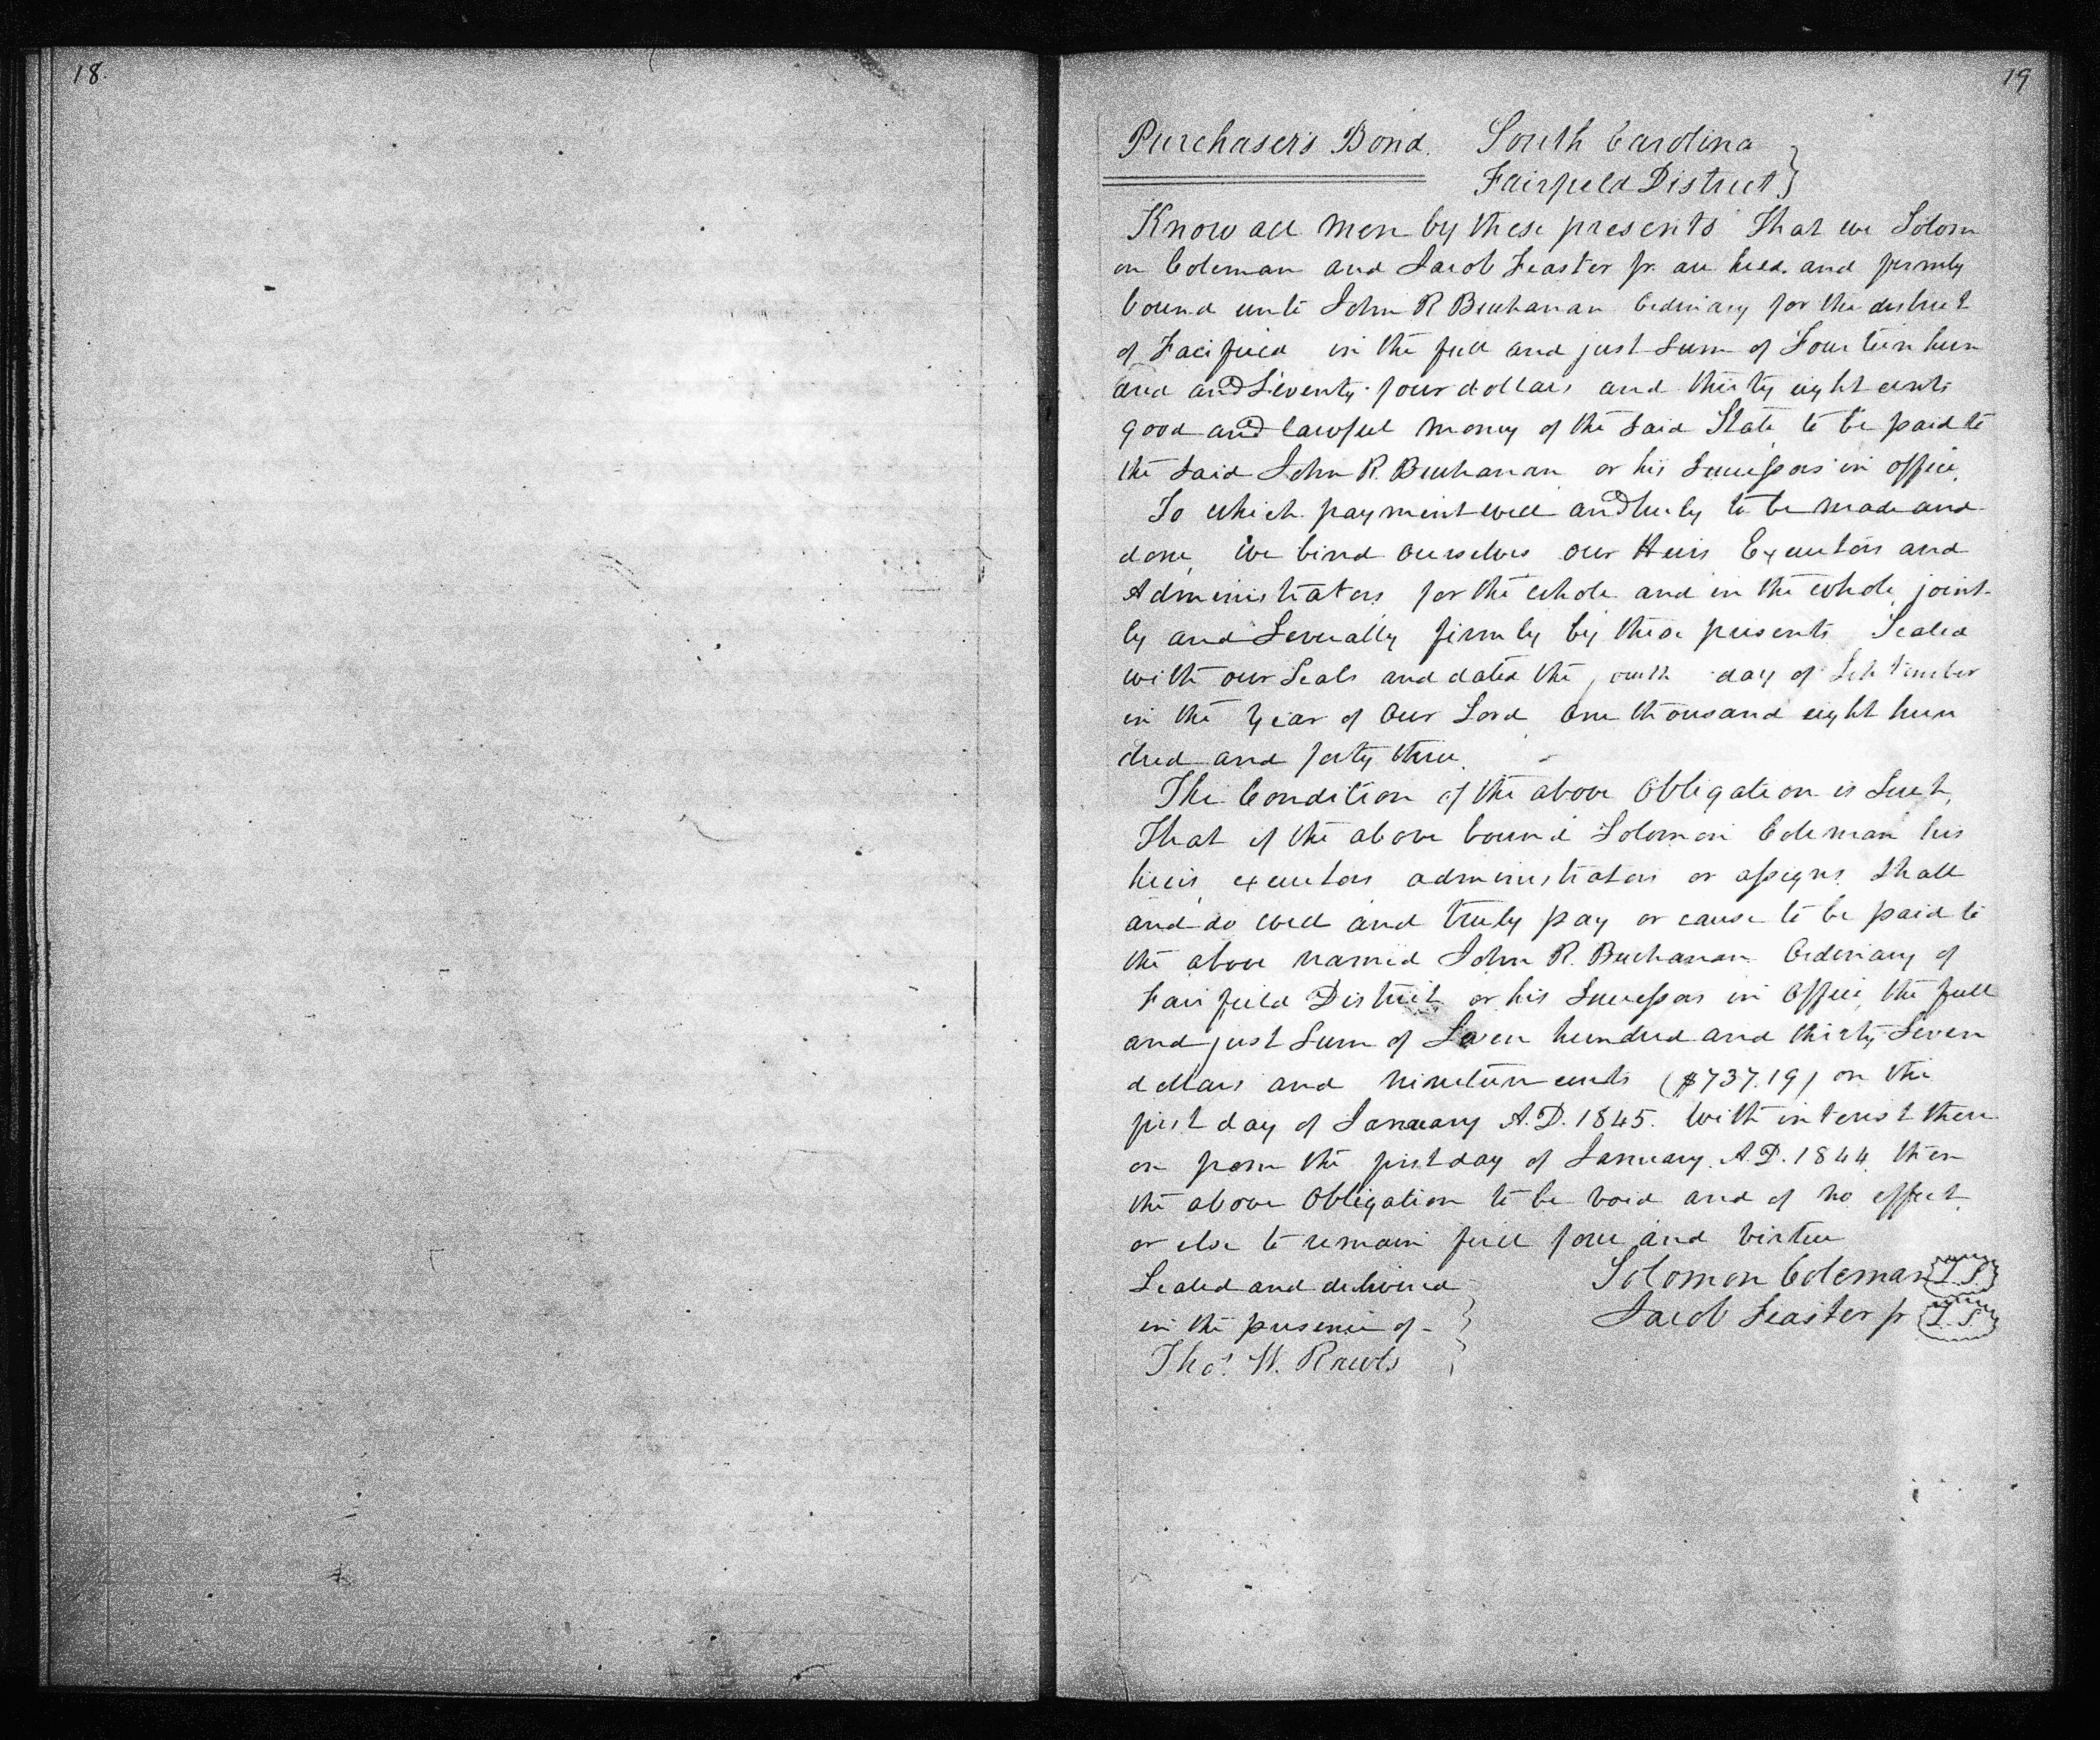 18.
19
Purchaser's Bond. South Carolina
Fairfield District }
Know all men by these presents That we Solom
on Coleman and Jacob Feaster jr. are held and firmly
bound unto John R Buchanan Ordinary for the district
of Fairfield in the full and just sum of Fourteen hun
dred and Seventy four dollars and thirty eight cents
good and lawful money of the said State to be paid to
the said John R. Buchanan or his Successors in office.
To which payment well and truly to be made and
done, we bind ourselves our Heirs Executors and
Administrators for the whole and in the whole, joint-
ly and Severally firmly by these presents Sealed
with our Seals and dated the day of September
in the Year of Our Lord One thousand eight hun
dred and forty three.
The Condition of the above Obligation is Such,
That if the above bound Solomon Coleman his
heirs, executors administrators or assigns shall
and do well and truly pay or cause to be paid to
the above named John R. Buchanan Ordinary of
Fairfield District or his Successors in Office, the full
and just Sum of Seven hundred and thirty Seven
dollars and nineteen cents ($737.19) on the
first day of January A.D. 1845. With interest there
on from the first day of January A.D. 1844 then
the above Obligation to be void and of no effect
or else to remain full force and virtue
Sealed and delivered Solomon Coleman L.S.
in the presence of - } Jacob Feaster jr L.S.
Thos. W. Rawls }